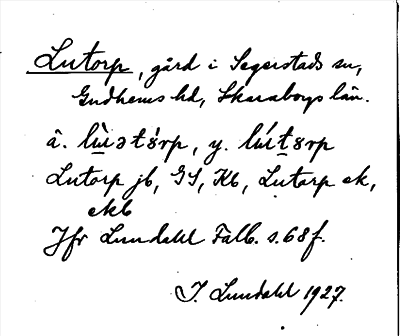 Lutorp, gård i Segerstads sn,
Gudhems hd, Skaraborgs län.
ä. lùətórp, y. lútorp
Lutorp jb, GS, Kb, Lutorp ek,
ekb
Jfr Lundahl Falb. s. 68 f.
I. Lundahl 1927.